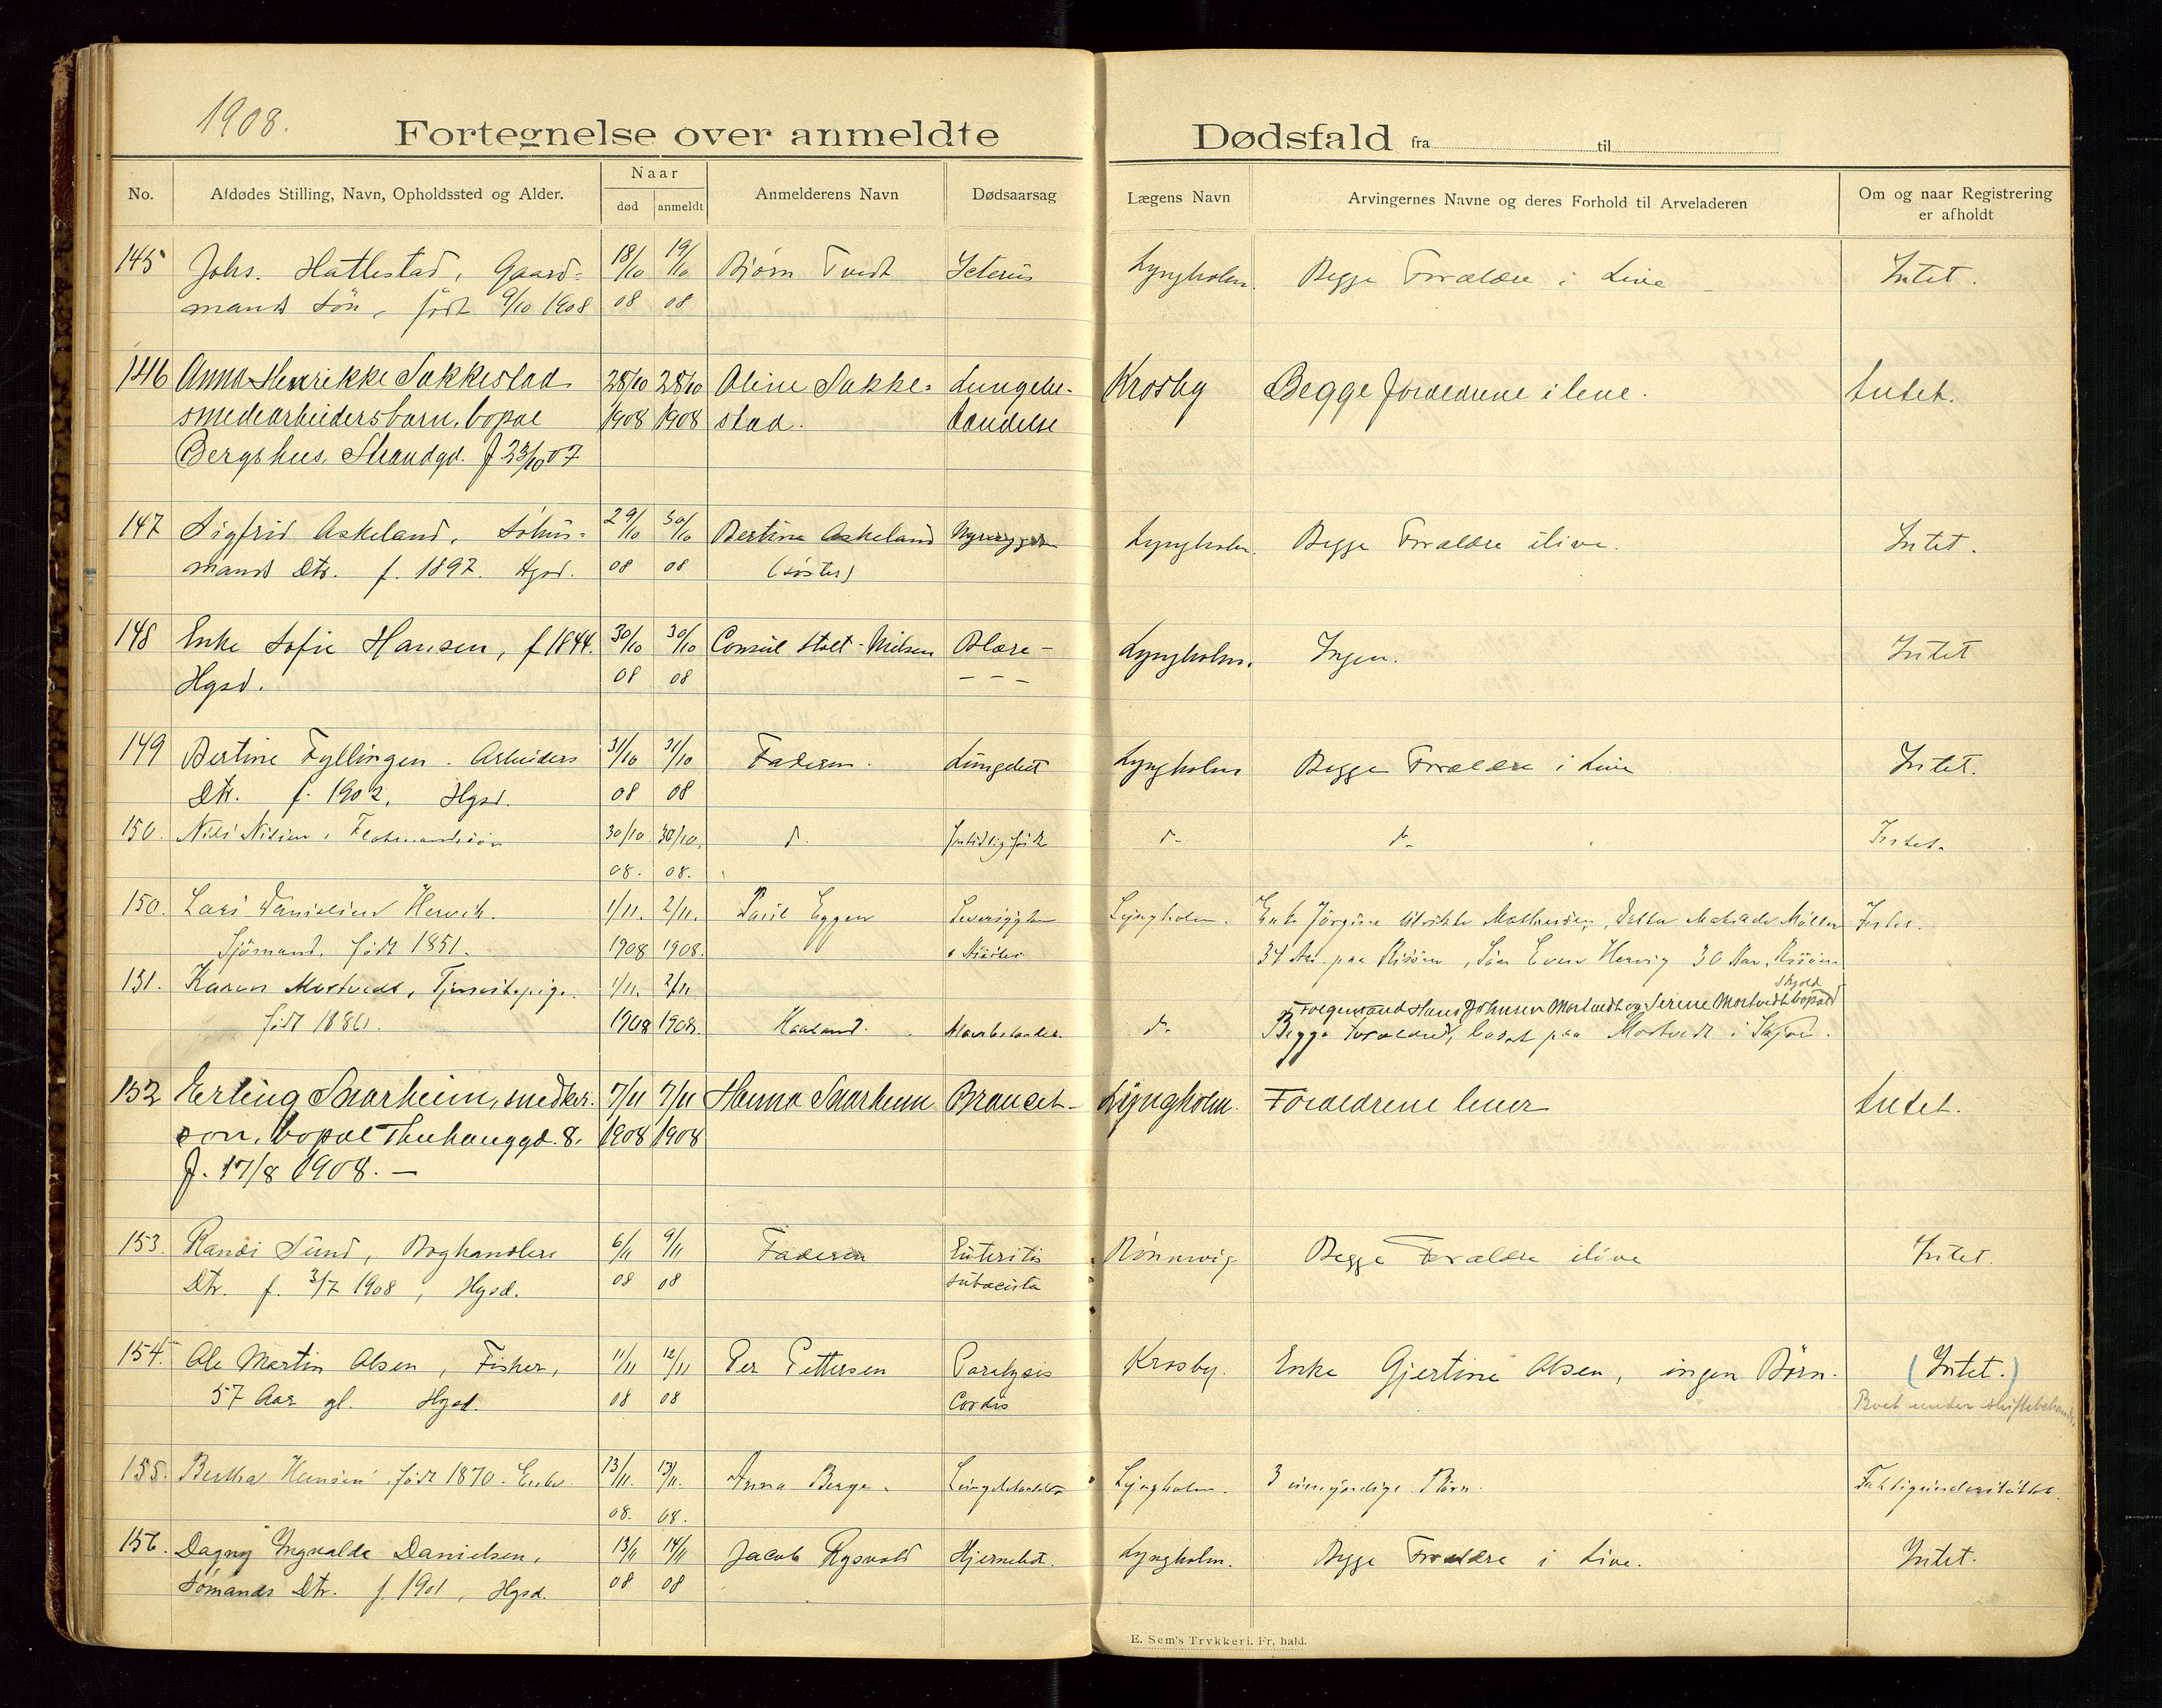 1908.
Fortegnelse over anmeldte Dødsfald fra til
No. Afdødes Stilling, Navn, Opholdssted og Alder. Naar død anmeldt Anmelderens Navn Dødsaarsag Lægens Navn Arvingernes Navne og deres Forhold til Arveladeren Om og naar Registrering er afholdt
145 Johs. Hatlestad, Gaard- 18/10 19/10 Bjørn Tvedt Icterus Lyngholm. Begge Forældre i Live Intet.
mands Søn, født 9/10 1908 08 08
146 Anna Henrikke Sakkestad 28/10 28/10 Oline Sakke- Lungebe- Krosby Begge forældrene i leve. Intet.
smedearbeidersbarn, bopæl 1908 1908 stad. tændelse
Bergshus, Strandgd. f 23/10 07
147 Sigfrid Askeland, Søhus- 29/10 30/10 Bertine Askeland Lyngholm. Begge Forældre ilive. Intet.
mands Dtr. f. 1892. Hgsd. 08 08 (Søster)
148 Enke Sofie Hansen, f 1844. 30/10 30/10 Consul Stolt-Nielsen Blære- Lyngholm. Ingen. Intet
Hgsd. 08 08 - - -
149 Bertine Fyllingen. Arbeiders 31/10 31/10 Faderen. Lungebet Lyngholm Begge Forældre i Live Intet.
Dtr. f. 1902, Hgsd. 08 08
150. Nils Nilsen, 30/10. 30/10. d. fortidlig født d- d- Intet.
08. 08.
150. Lars Danielsen Hervik. 1/11. 2/11. Paul Eggen Leversygdom Lyngholm. Enke Jørgine Mathiesen, Datter Møller Intet.
Sjømand, født 1851. 1908 1908. 34 Aar paa Risøen, Søn Even Hervig 30 Aar, Risøen
151. Karen Mortvedt, Tjenestepige. 1/11. 2/11. Skjold
Følgemand Hans Johnsen Mortvedt og Serine Mortvedt bopæl
født 1886. 1908 1908. Haaland. d- Begge Forældre, bosat paa Mortvedt i Skjold.
152 Erling Snarheim, snedker. 7/11 7/11 Hanna Snarheim Lyngholm. Forældrene lever Intet.
søn, bopæl Thuhauggd. 8. 1908 1908
f. 17/8 1908. —
153. Randi Sund, Boghandlers 6/11 9/11 Faderen Enteritis Rønnevig Begge Forældre ilive Intet.
Dtr. f. 3/7 1908, Hgsd. 08 08 subacuta
154. Ole Martin Olsen, Fisker, 11/11 12/11 Per Pettersen Paralysis Krosby. Enke Gjertine Olsen, ingen Børn. (Intet.)
57 Aar gl. Hgsd. 08 08 Cordis Boet under skiftebehand.
155. Bertha Hansen født 1870. Enke 13/11. 13/11. Anna Berge. Lungebetændelse Lyngholm. 3 umyndige Børn. Fattigunderstøttet.
08. 08.
156. Dagny Ingvalda Danielsen, 13/11 14/11 Jacob Rysvold Hjernebet. Lyngholm. Begge Forældre i Live. Intet.
Sømands Dtr. f. 1901, Hgsd. 08 08
E. Sem's Trykkeri. Fr. hald.